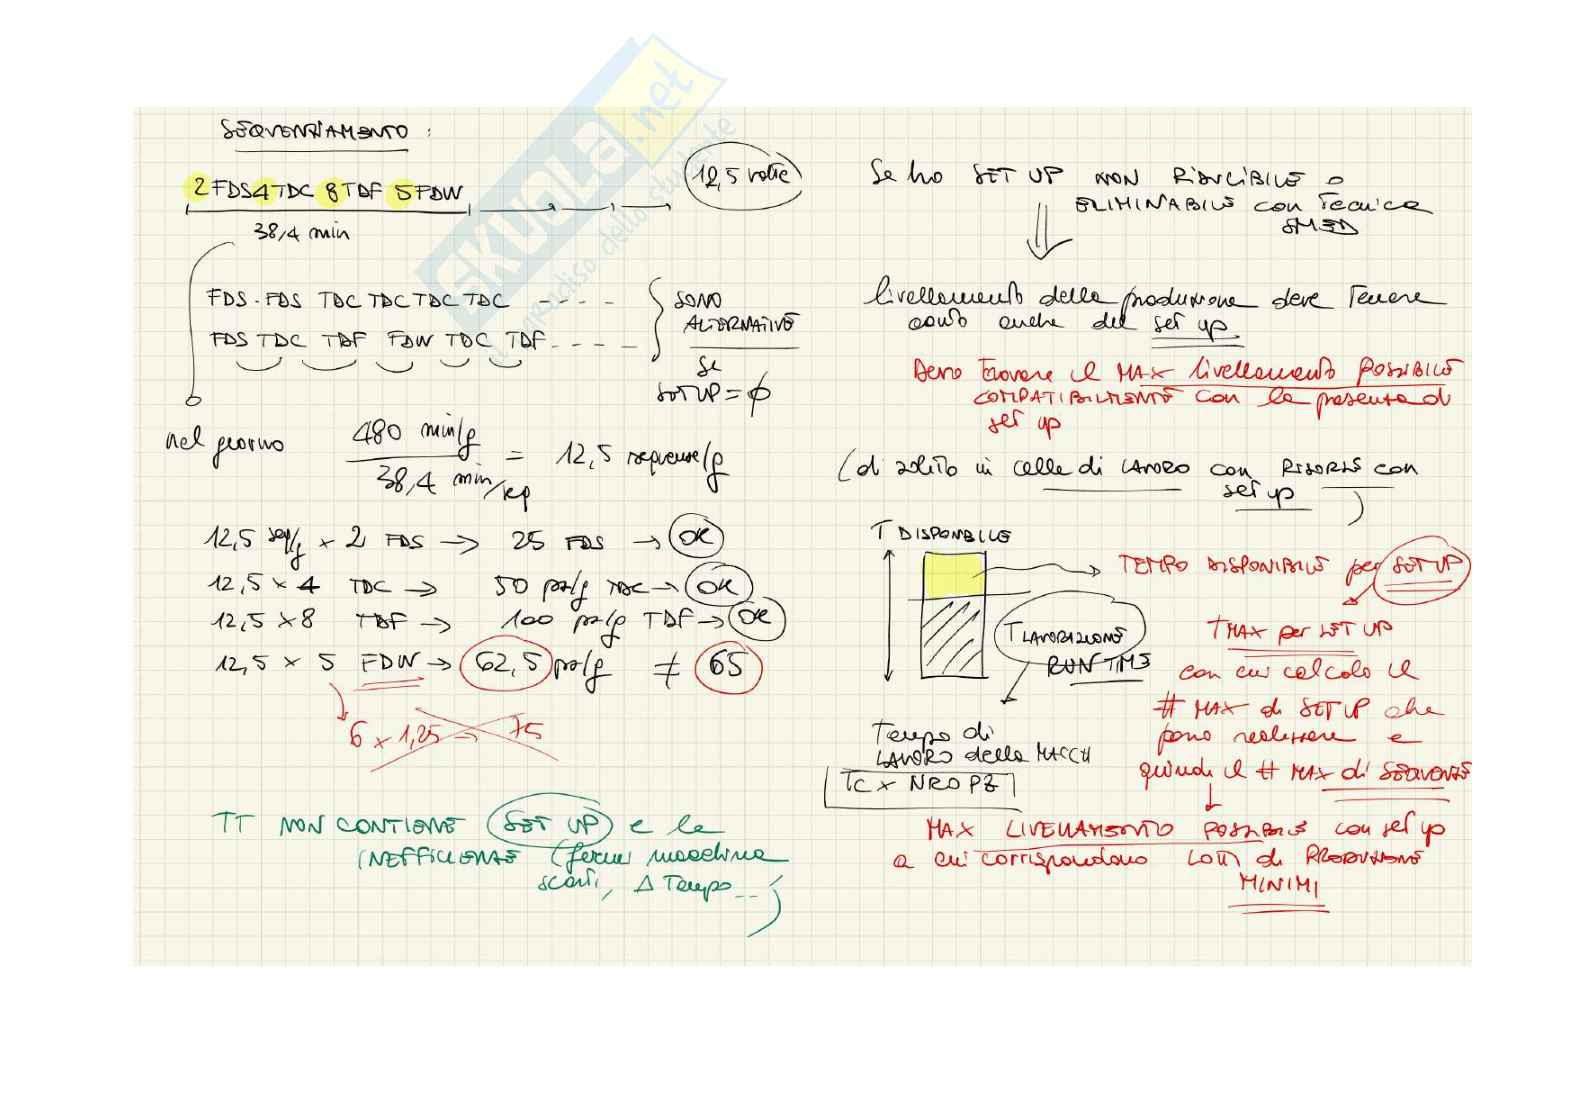 SEQUENZIAMENTO :
2 FDS 4 TDC 8 TDF 5 FDW
12,5 volte
38,4 min
FDS - FDS TDC TDC TDC TDC - - - -
FDS TDC TDF FDW TDC TDF - - - -
SONO
ALTERNATIVE
SE
SET UP = ϕ
nel giorno 480 min/g
38,4 min/seq
= 12,5 sequenze/g
12,5 seq/g × 2 FDS → 25 FDS → OK
12,5 × 4 TDC → 50 pz/g TDC → OK
12,5 × 8 TDF → 100 pz/g TDF → OK
12,5 × 5 FDW → 62,5 pz/g ≠ 65
6 × 1,25 = 75
TT NON CONTIENE SET UP e le
INEFFICIENZE (fermi macchina
scarti, Δ Tempo...)
Se ho SET UP NON RIDUCIBILE o
ELIMINABILE con Tecnica
SMED
livellamento della produzione deve Tenere
conto anche del set up
Devo trovare il MAX livellamento POSSIBILE
COMPATIBILMENTE con la presenza di
set up
(di solito in celle di LAVORO con RISORSE con
set up )
T DISPONIBILE
TEMPO DISPONIBILE per SET UP
T LAVORAZIONE
RUN TIME
Tempo di
LAVORO della MACCH
TC × NRO PZ
TMAX per SET UP
con cui calcolo il
# MAX di SET UP che
posso realizzare e
quindi il # MAX di SEQUENZE
MAX LIVELLAMENTO POSSIBILE con set up
a cui corrispondono LOTTI di PRODUZIONE
MINIMI
SKUOLA.net
il paradiso dello studente